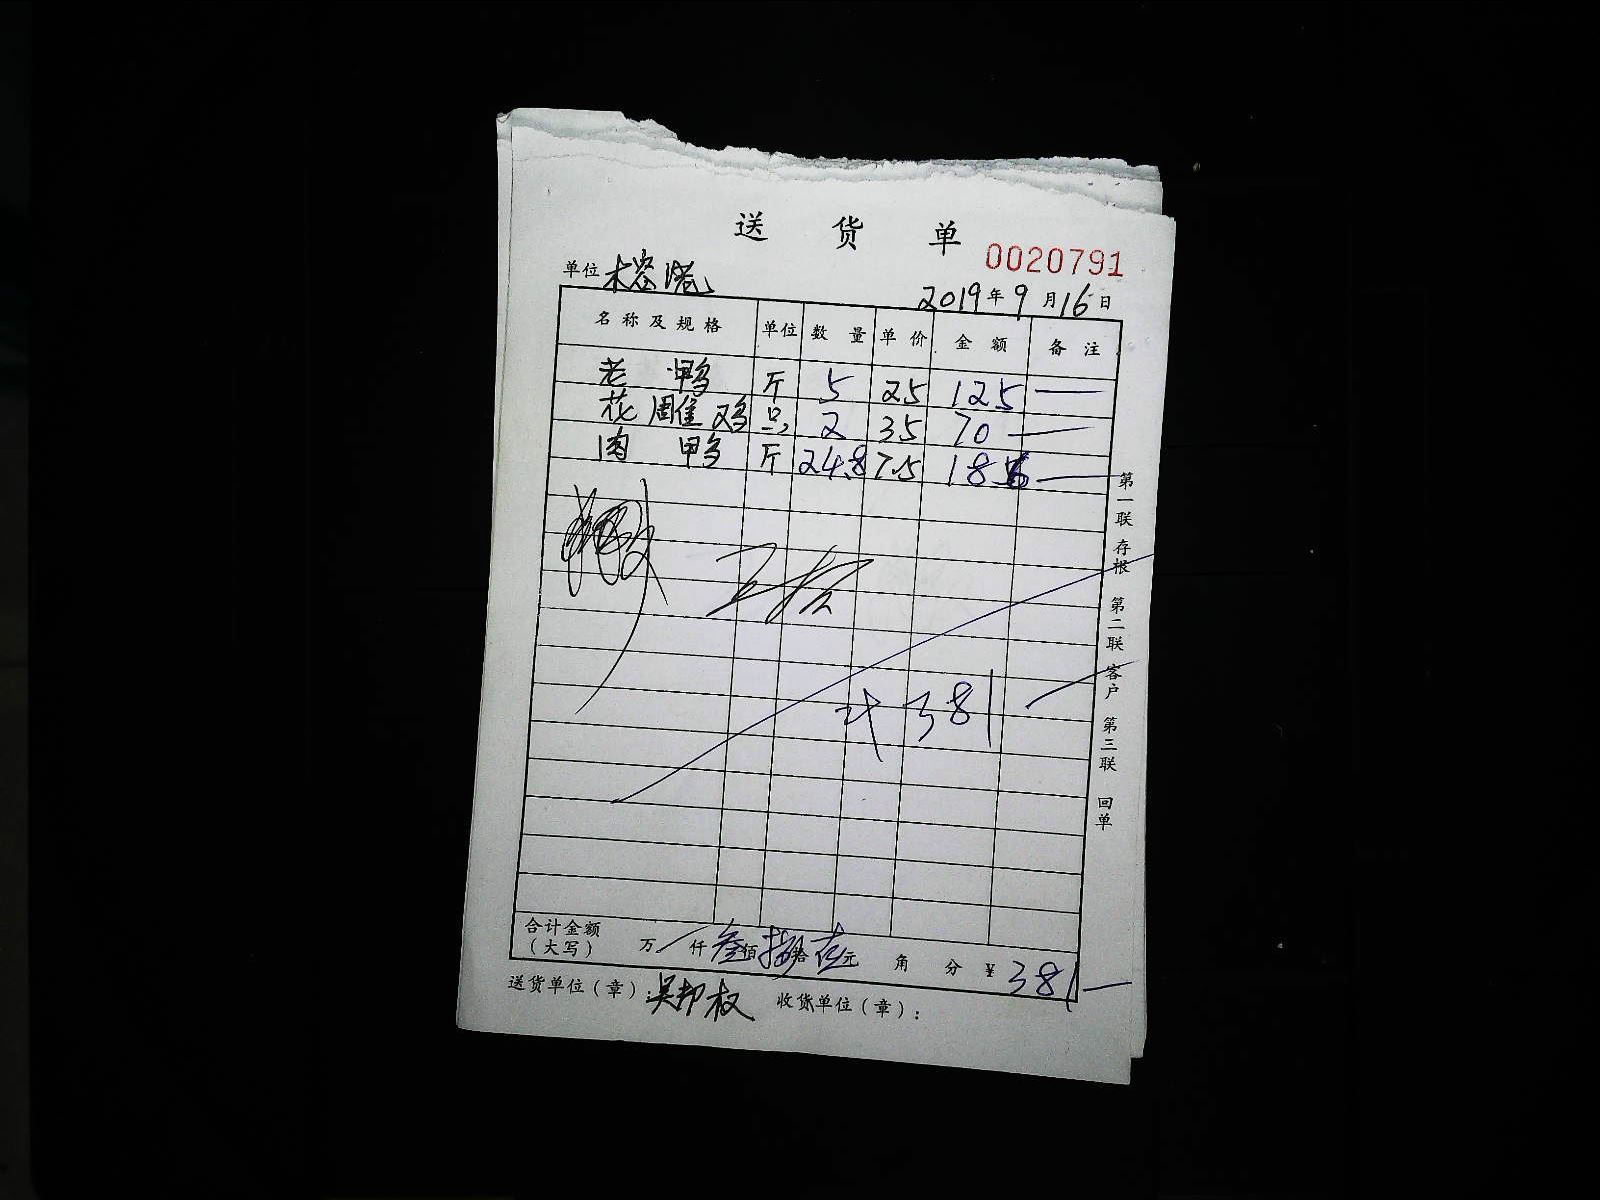 送 货 单
0020791
单位 木容港
2019年9月16日
名称及规格 单位 数量 单价 金额 备注
老鸭 斤 5 25 125 —
花雕鸡 只 2 35 70 —
肉鸭 斤 24.8 7.5 186 —
计 381 —
合计金额（大写） 万 仟 叁佰捌拾壹元 角 分 ¥ 381—
送货单位（章）：吴邦权 收货单位（章）：
第一联 存根 第二联 客户 第三联 回单